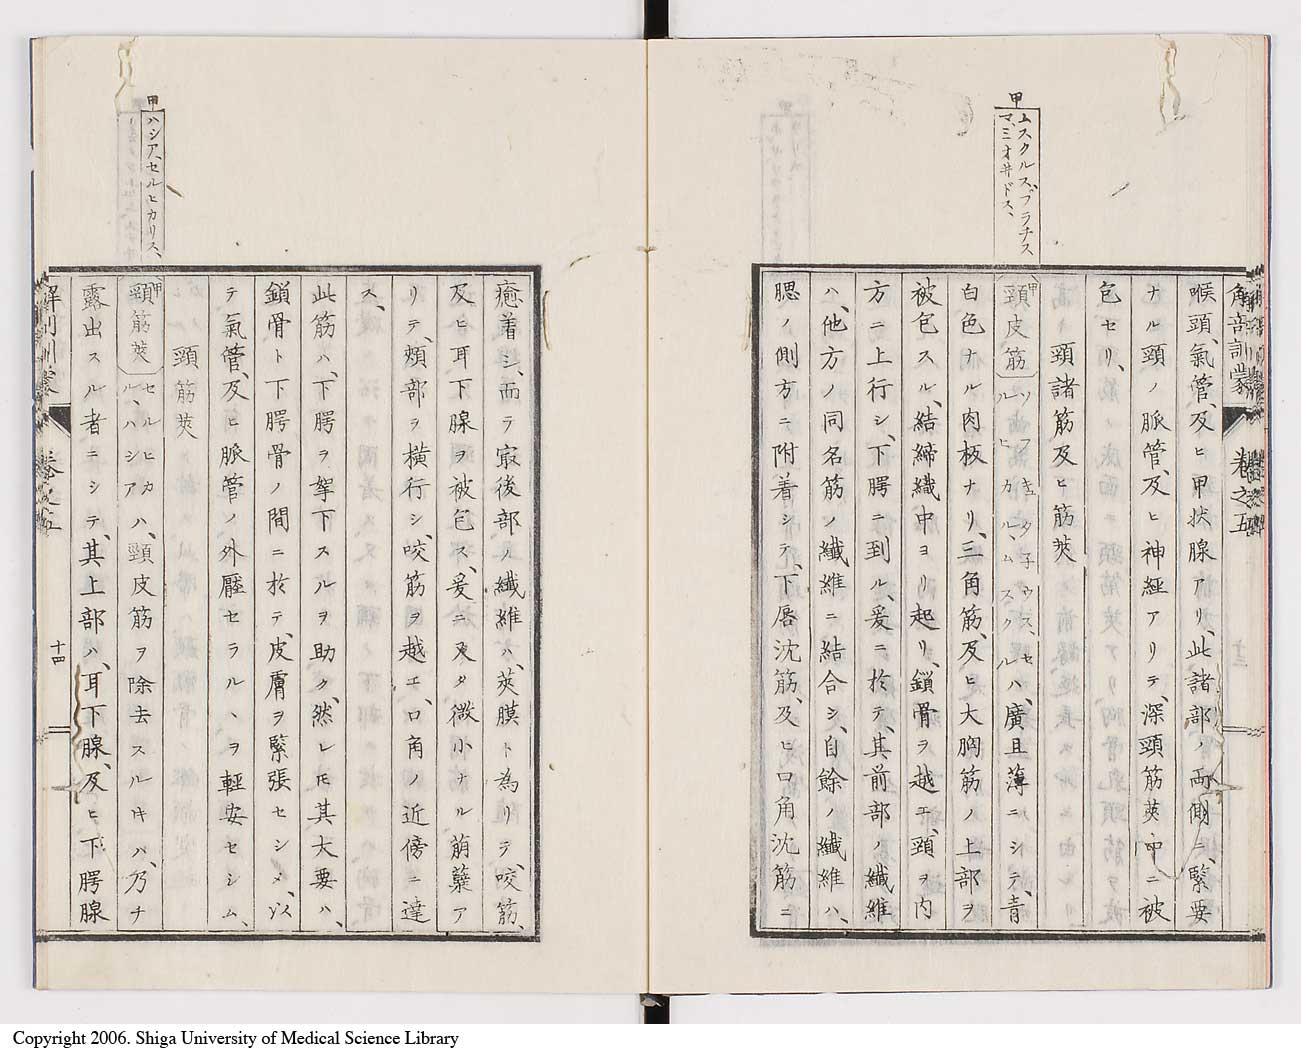 甲
ムスクルス、プラチス
マ、ミオ井ドス、
解剖訓蒙 卷之五
喉頭、氣管、及ヒ甲状腺アリ、此諸部ノ兩側ニ、緊要
ナル頸ノ脈管、及ヒ神經アリテ、深頸筋莢中ニ被
包セリ、
頸諸筋及ヒ筋莢
甲頸皮筋
ルヒカルムスクルハ、廣且薄ニシテ、青
白色ナル肉板ナリ、三角筋、及ヒ大胸筋ノ上部ヲ
被包スル、結締織中ヨリ起リ、鎖骨ヲ越エ、頸ヲ内
方ニ上行シ、下腭ニ到ル、爰ニ於テ、其前部ノ纎維
ハ、他方ノ同名筋ノ纎維ニ結合シ、自餘ノ纎維ハ、
腮ノ側方ニ附着シテ、下唇沈筋、及ヒ口角沈筋ニ
甲
ハシア、セルヒカリス、
癒着シ、而テ㝡後部ノ纎維ハ、莢膜ト為リテ、咬筋、
及ヒ耳下腺ヲ被包ス、爰ニ又タ微小ナル萠蘖ア
リテ、頰部ヲ横行シ、咬筋ヲ越エ、口角ノ近傍ニ達
ス、
此筋ハ、下腭ヲ挐下スルヲ助ク、然レ𪜈其大要ハ、
鎖骨ト下腭骨ノ間ニ於テ、皮膚ヲ緊張セシメ、以
テ氣管、及ヒ脈管ノ外壓セラルヽヲ輕安セシム、
頸筋莢
甲頸筋莢
セルヒカ
ル、ハシア
ハ、頸皮筋ヲ除去スルキハ、乃チ
露出スル者ニシテ、其上部ハ、耳下腺、及ヒ下腭腺
解剖訓蒙 卷之五 十四